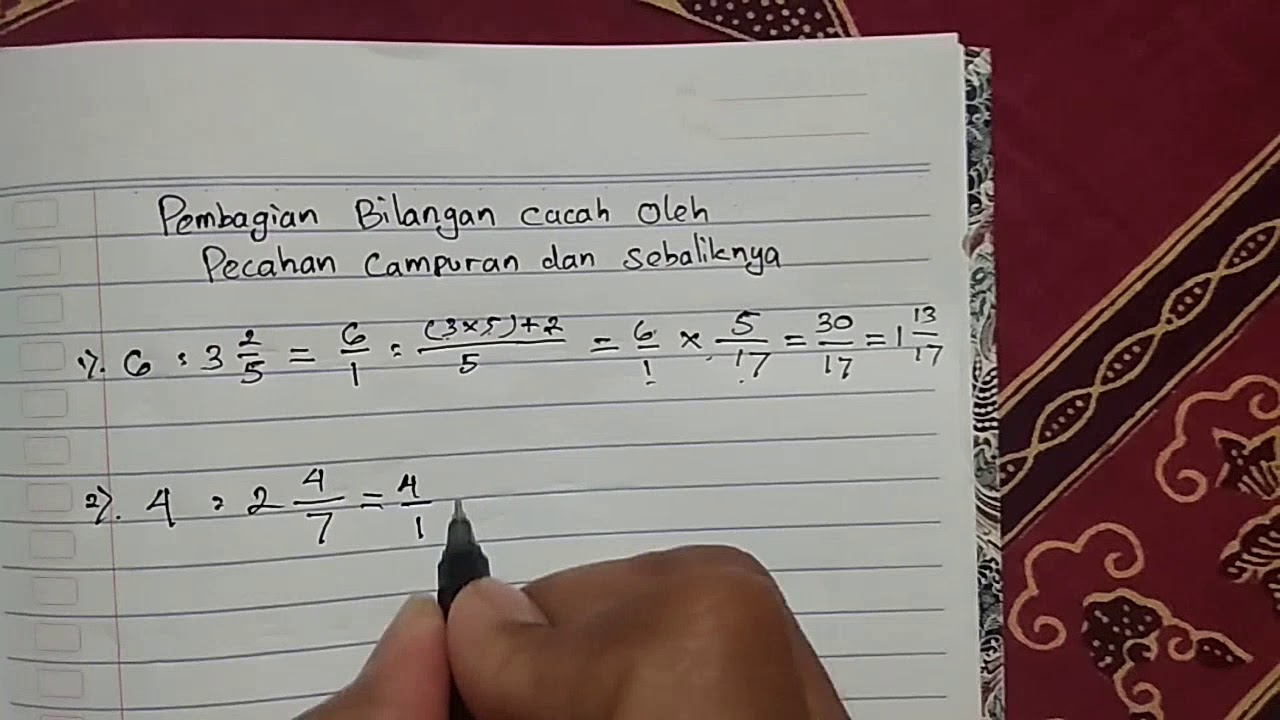 Pembagian Bilangan cacah oleh
Pecahan Campuran dan sebaliknya
1). 6 : 3 2/5 = 6/1 : (3×5)+2/5 = 6/1 × 5/17 = 30/17 = 1 13/17
2). 4 : 2 4/7 = 4/1